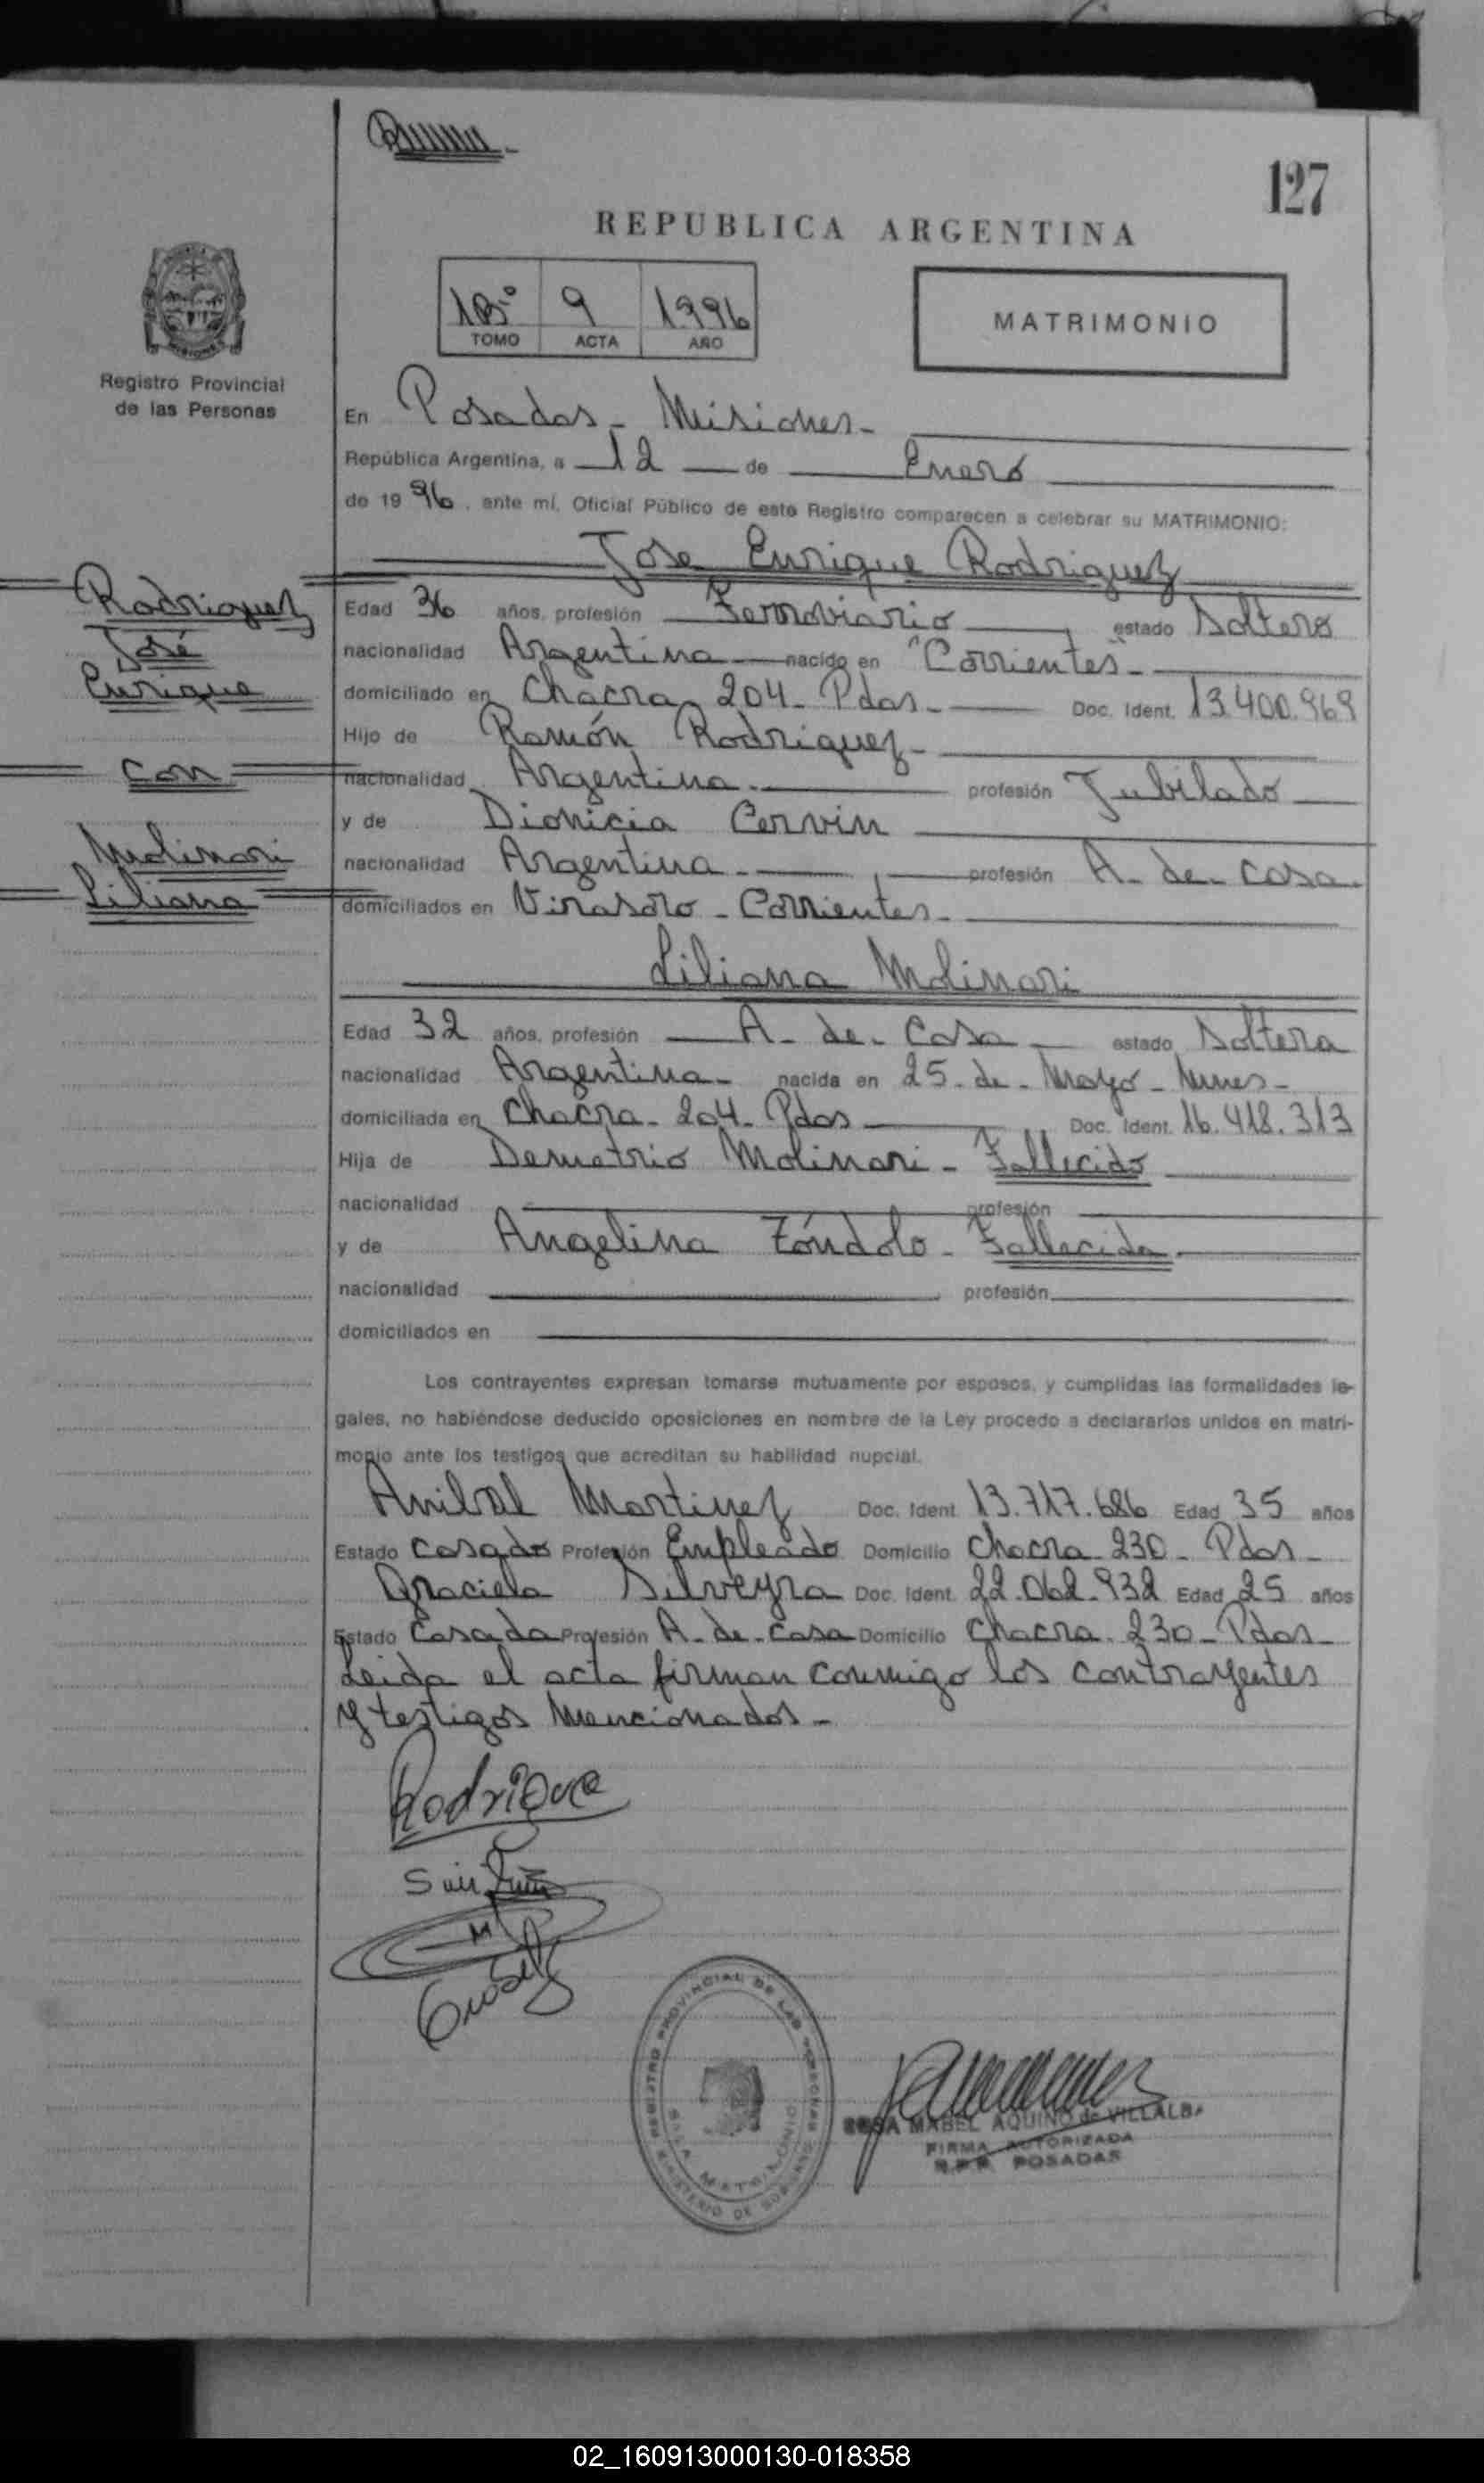 127
REPUBLICA ARGENTINA
9 1996
TOMO ACTA AÑO
MATRIMONIO
Registro Provincial
de las Personas
En Posadas - Misiones -
República Argentina, a 12 de Enero
de 1996, ante mí, Oficial Público de este Registro comparecen a celebrar su MATRIMONIO:
Jose Enrique Rodriguez
Rodriguez
José
Enrique
con
Molinari
Liliana
Edad 36 años, profesión Ferroviario estado Soltero
nacionalidad Argentina nacido en "Corrientes"-
domiciliado en Chacra 204 - Pdas - Doc. Ident. 13.400.969
Hijo de Ramón Rodriguez -
nacionalidad Argentina - profesión Jubilado
y de Dionicia Cervin
nacionalidad Argentina - profesión A - de - casa -
domiciliados en Virasoro - Corrientes -
Liliana Molinari
Edad 32 años, profesión A - de - Casa - estado Soltera
nacionalidad Argentina - nacida en 25 - de - Mayo -
domiciliada en Chacra - 204 - Pdas Doc. Ident. 16.418.313
Hija de Demetrio Molinari - Fallecido
nacionalidad profesión
y de Angelina Zóndolo - Fallecida
nacionalidad profesión
domiciliados en
Los contrayentes expresan tomarse mutuamente por esposos, y cumplidas las formalidades le-
gales, no habiéndose deducido oposiciones en nombre de la Ley procedo a declararlos unidos en matri-
monio ante los testigos que acreditan su habilidad nupcial.
Anibal Martinez Doc. Ident. 13.717.686 Edad 35 años
Estado Casado Profesión Empleado Domicilio Chacra 230 - Pdas -
Graciela Silveyra Doc. Ident. 22.062.932 Edad 25 años
Estado Casada Profesión A - de - Casa Domicilio Chacra 230 - Pdas
Leida el acta firman conmigo los contrayentes
y testigos mencionados -
Rodrigue
REGISTRO PROVINCIAL DE LAS PERSONAS
SALA MATRIMONIO
MINISTERIO DE GOBIERNO
ROSA MABEL AQUINO de VILLALBA
FIRMA AUTORIZADA
R.P.P. POSADAS
02_160913000130-018358